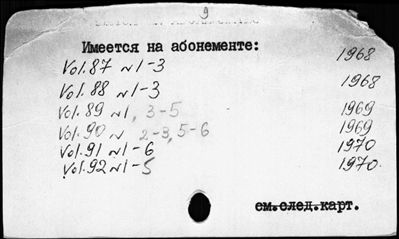 9
Имеется на абонементе:
Vol.87 №1-3 1968
Vol.88 №1-3 1968
Vol.89 №1, 3-5 1969
Vol.90 № 2-3, 5-6 1969
Vol.91 №1-6 1970
Vol.92 №1-5 1970
см.след.карт.